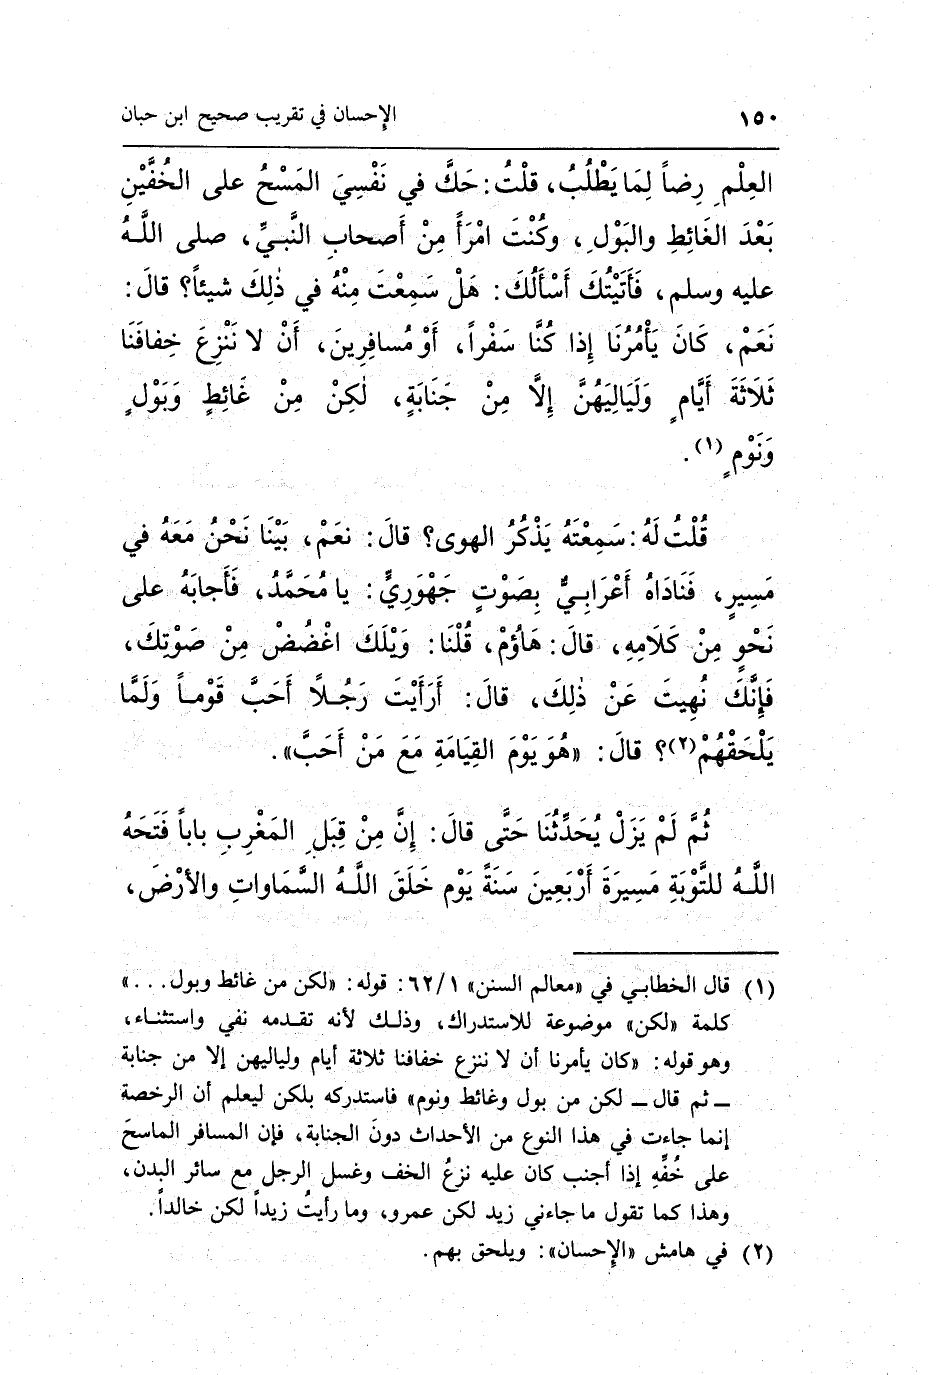 ١٥٠ الإحسان في تقريب صحيح ابن حبان
العِلْمِ رِضاً لِمَا يَطْلُبُ، قلْتُ: حَكَّ في نَفْسِيَ المَسْحُ على الخُفَّيْنِ
بَعْدَ الغَائِطِ والبَوْلِ، وكُنْتَ امْرَأً مِنْ أَصحابِ النَّبيِّ، صلى اللَّهُ
عليه وسلم، فَأَتَيْتُكَ أَسْأَلُكَ: هَلْ سَمِعْتَ مِنْهُ في ذٰلِكَ شيئاً؟ قالَ:
نَعَمْ، كَانَ يَأْمُرُنَا إِذا كُنَّا سَفْراً، أَوْ مُسافِرِينَ، أَنْ لا نَنْزِعَ خِفافَنَا
ثَلَاثَةَ أَيَّامٍ وَلَيَالِيَهُنَّ إِلَّا مِنْ جَنَابَةٍ، لٰكِنْ مِنْ غَائِطٍ وَبَوْلٍ
وَنَوْمٍ(١).
قُلْتُ لَهُ: سَمِعْتَهُ يَذْكُرُ الهوى؟ قالَ: نعَمْ، بَيْنَا نَحْنُ مَعَهُ في
مَسِيرٍ، فَنَادَاهُ أَعْرَابِيٌّ بِصَوْتٍ جَهْوَرِيٍّ: يا مُحَمَّدُ، فَأَجابَهُ على
نَحْوٍ مِنْ كَلَامِهِ، قالَ: هَاؤُمْ، قُلْنَا: وَيْلَكَ اغْضُضْ مِنْ صَوْتِكَ،
فَإِنَّكَ نُهِيتَ عَنْ ذٰلِكَ، قالَ: أَرَأَيْتَ رَجُلاً أَحَبَّ قَوْماً وَلَمَّا
يَلْحَقْهُمْ(٢)؟ قالَ: «هُوَ يَوْمَ القِيَامَةِ مَعَ مَنْ أَحَبَّ».
ثُمَّ لَمْ يَزَلْ يُحَدِّثُنَا حَتَّى قالَ: إِنَّ مِنْ قِبَلِ المَغْرِبِ باباً فَتَحَهُ
اللَّهُ للتَّوْبَةِ مَسِيرَةَ أَرْبَعِينَ سَنَةً يَوْم خَلَقَ اللَّهُ السَّمَاواتِ والأرْضَ،
(١) قال الخطابي في «معالم السنن» ٦٢/١: قوله: «لكن من غائط وبول...»
كلمة «لكن» موضوعة للاستدراك، وذلك لأنه تقدمه نفي واستثناء،
وهو قوله: «كان يأمرنا أن لا ننزع خفافنا ثلاثة أيام ولياليهن إلا من جنابة
ــ ثم قال ــ لكن من بول وغائط ونوم» فاستدركه بلكن ليعلم أن الرخصة
إنما جاءت في هذا النوع من الأحداث دونَ الجنابة، فإن المسافر الماسحَ
على خُفِّهِ إذا أجنب كان عليه نزعُ الخف وغسل الرجل مع سائر البدن،
وهذا كما تقول ما جاءني زيد لكن عمرو، وما رأيتُ زيداً لكن خالداً.
(٢) في هامش «الإحسان»: ويلحق بهم.